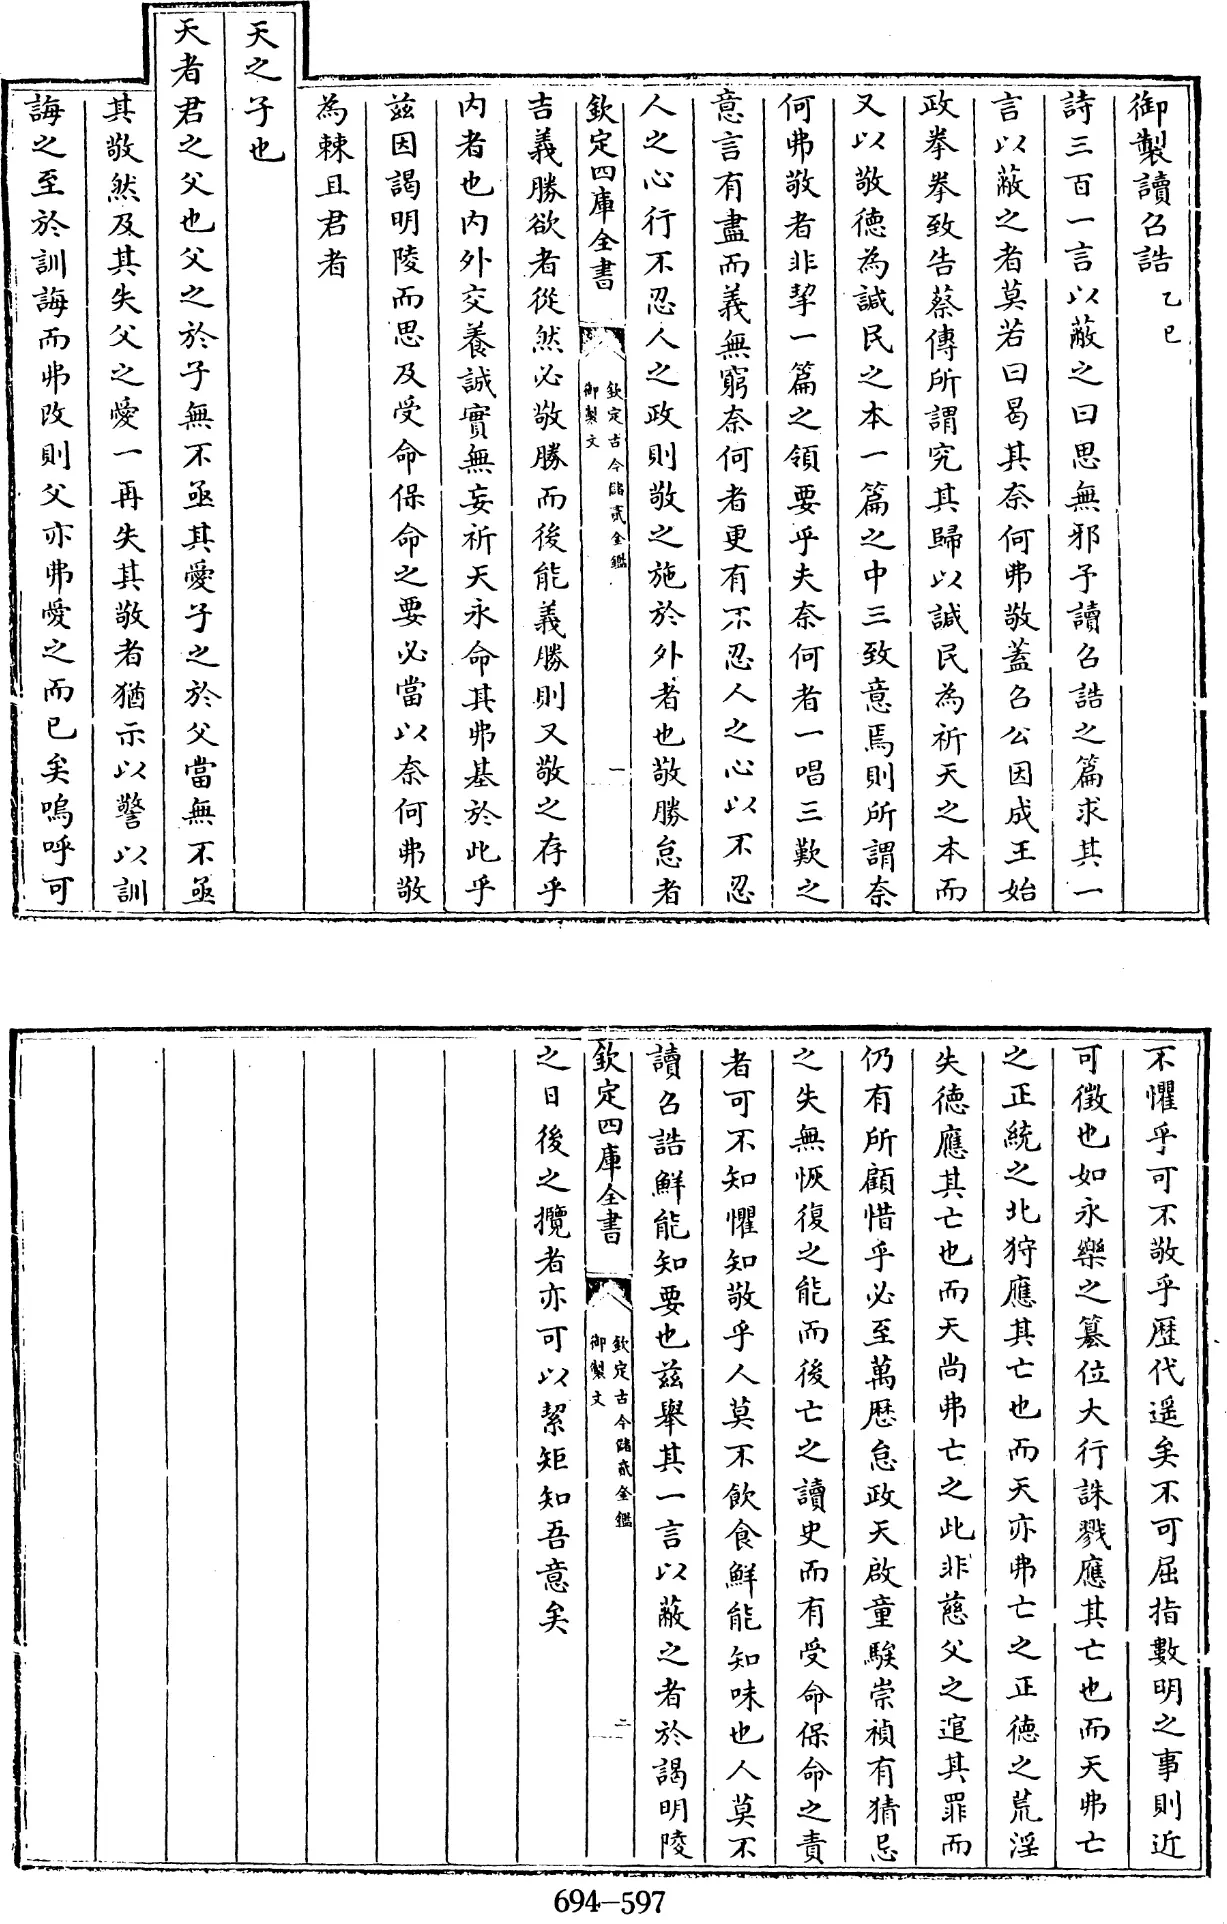 御製讀召誥乙巳
詩三百一言以蔽之曰思無邪予讀召誥之篇求其一
言以蔽之者莫若曰曷其奈何弗敬蓋召公因成王始
政拳拳致告蔡傳所謂究其歸以諴民為祈天之本而
又以敬德為諴民之本一篇之中三致意焉則所謂奈
何弗敬者非挈一篇之領要乎夫奈何者一唱三歎之
意言有盡而義無窮奈何者更有不忍人之心以不忍
人之心行不忍人之政則敬之施於外者也敬勝怠者
欽定四庫全書
欽定古今儲貳金鑑
御製文
一
吉義勝欲者從然必敬勝而後能義勝則又敬之存乎
内者也内外交養誠實無妄祈天永命其弗基於此乎
兹因謁明陵而思及受命保命之要必當以奈何弗敬
為棘且君者
天之子也
天者君之父也父之於子無不亟其愛子之於父當無不亟
其敬然及其失父之愛一再失其敬者猶示以警以訓
誨之至於訓誨而弗改則父亦弗愛之而已矣嗚呼可
不懼乎可不敬乎歴代遥矣不可屈指數明之事則近
可徵也如永樂之簒位大行誅戮應其亡也而天弗亡
之正統之北狩應其亡也而天亦弗亡之正德之荒淫
失德應其亡也而天尚弗亡之此非慈父之逭其罪而
仍有所顧惜乎必至萬厯怠政天啟童騃崇禎有猜忌
之失無恢復之能而後亡之讀史而有受命保命之責
者可不知懼知敬乎人莫不飲食鮮能知味也人莫不
讀召誥鮮能知要也兹舉其一言以蔽之者於謁明陵
欽定四庫全書
欽定古今儲貳金鑑
御製文
二
之日後之攬者亦可以絜矩知吾意矣
694–597